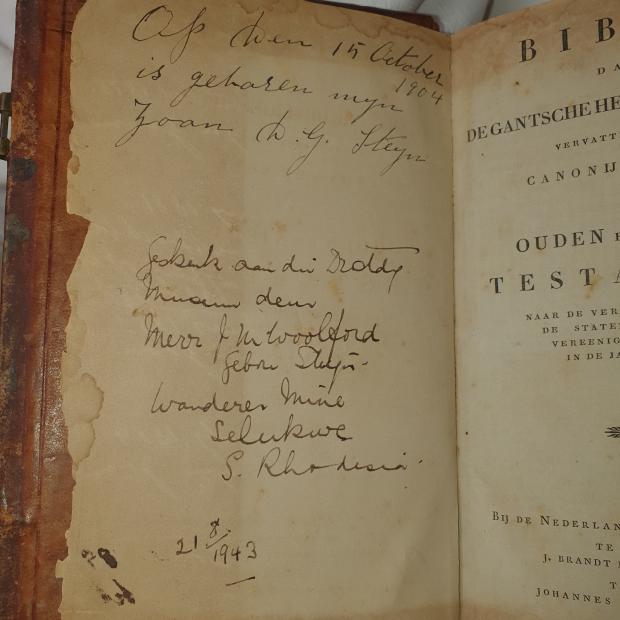 Op den 15 October
1904
is geboren myn
Zoon D. G. Steyn
Geskenk aan die Drotdy
Museum deur
Mevr J M Woolford
Gebore Steyn.
Wanderer Mine
Selukwe
S. Rhodesia.
21/8/1943
BIB
DA
DE GANTSCHE HE
VERVATT
CANONIJ
OUDEN
TESTA
NAAR DE VER
DE STATEN
VEREENIG
IN DE JA
BIJ DE NEDERLAN
TE
J. BRANDT
T
JOHANNES